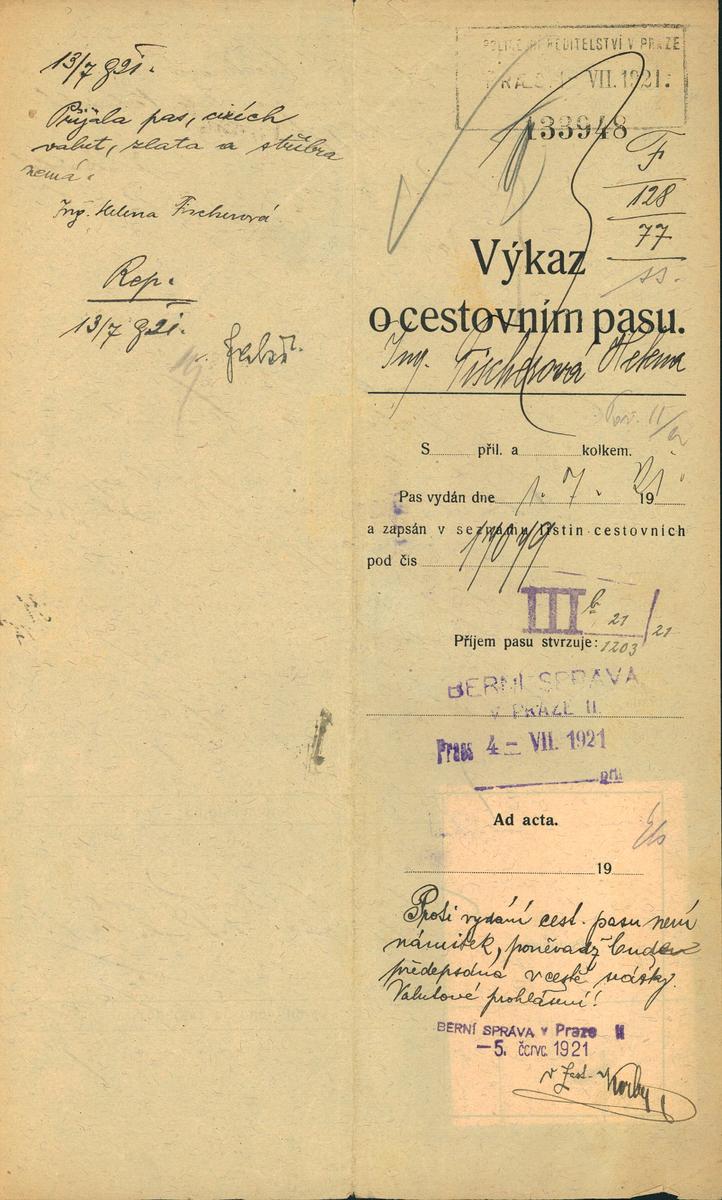 13/7 921.
Přijala pas, cizích
valut, zlata a stříbra
nemá.
Ing. Helena Fischerová
Rep.
13/7 921.
POLICEJNÍ ŘEDITELSTVÍ V PRAZE
VII. 1921.
133948
F
128
77
Výkaz
o cestovním pasu.
Ing. Fischerová Helena
S příl. a kolkem.
Pas vydán dne 1. 7. 1921
a zapsán v seznamu listin cestovních
pod čís
III b 21/21
1203
Příjem pasu stvrzuje:
BERNÍ SPRAVA
V PRAZE II.
Praes 4 - VII. 1921
příl.
Ad acta.
19
Proti vydání cest. pasu není
námitek, poněvadž
předepsána
Valutové prohlášení!
BERNÍ SPRÁVA v Praze II
-5. červc. 1921
v zast.